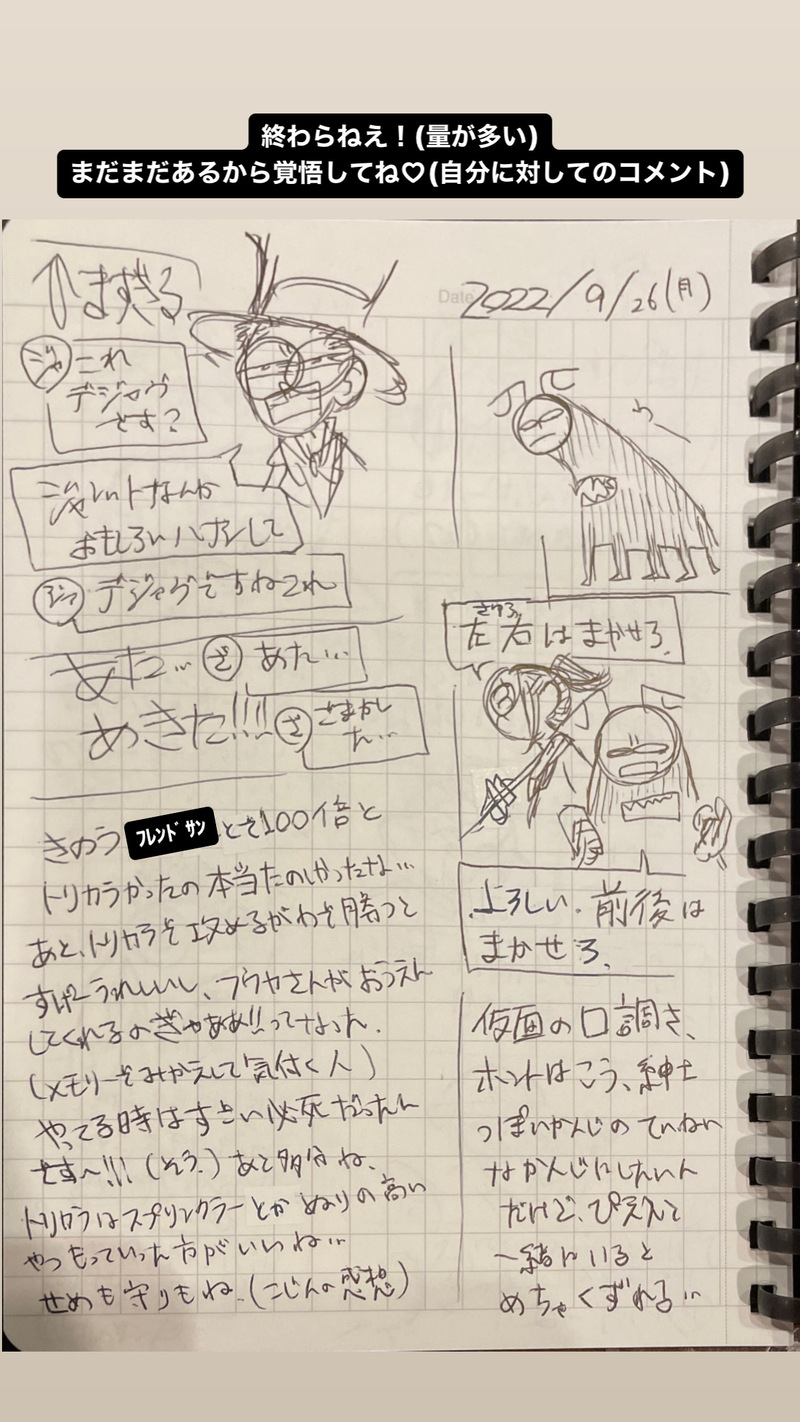 終わらねえ！(量が多い)
まだまだあるから覚悟してね♡(自分に対してのコメント)
Date 2022/9/26(月)
ますぎる
ジャ これ
デジャヴ
です？
ジャレットなんか
おもしろいハナシして
デジャヴですねこれ
あた… ざ あた…
めきた!!! ざ ごまかし
た…
きのう フレンドサン とさ100倍と
トリカラかったの本当たのしかったな…
あと、トリカラを攻めるがわを勝つと
すげーうれしいし、フウカさんがおうえん
してくれるのぎゃああ!!ってなった.
(メモリーをみかえして気付く人)
やってる時はすごい必死だったん
ですー!!! (そう.) あと多分ね、
トリカラはスプリンクラーとかぬりの高い
やつもっていった方がいいね…
せめも守りもね.(こじんの感想)
さゆう
左右はまかせろ.
よろしい.前後は
まかせろ.
仮面の口調さ、
ホントはこう、紳士
っぽいかんじのていねい
なかんじにしたいん
だけど、ぴえんと
一緒にいると
めちゃくずれる…